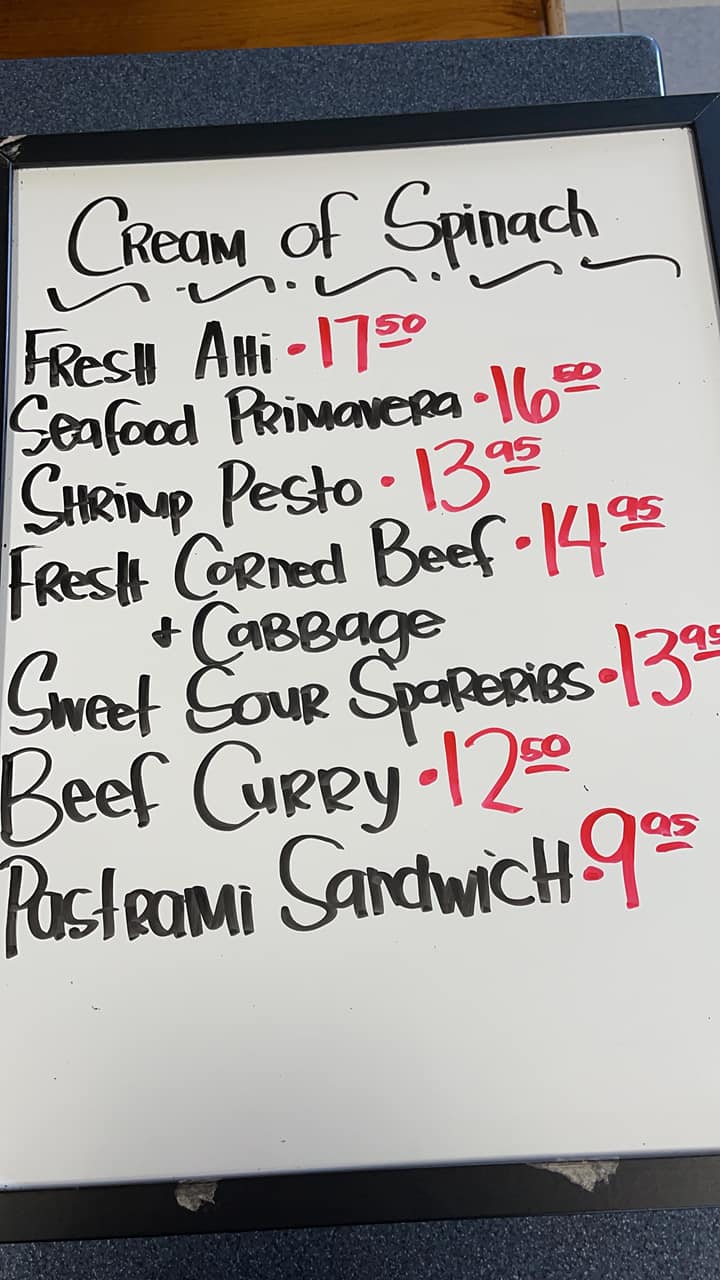 Cream of Spinach
Fresh Ahi • 17 50
Seafood Primavera • 16 50
Shrimp Pesto • 13 95
Fresh Corned Beef • 14 95
+ Cabbage
Sweet Sour Spareribs • 13 95
Beef Curry • 12 50
Pastrami Sandwich • 9 95